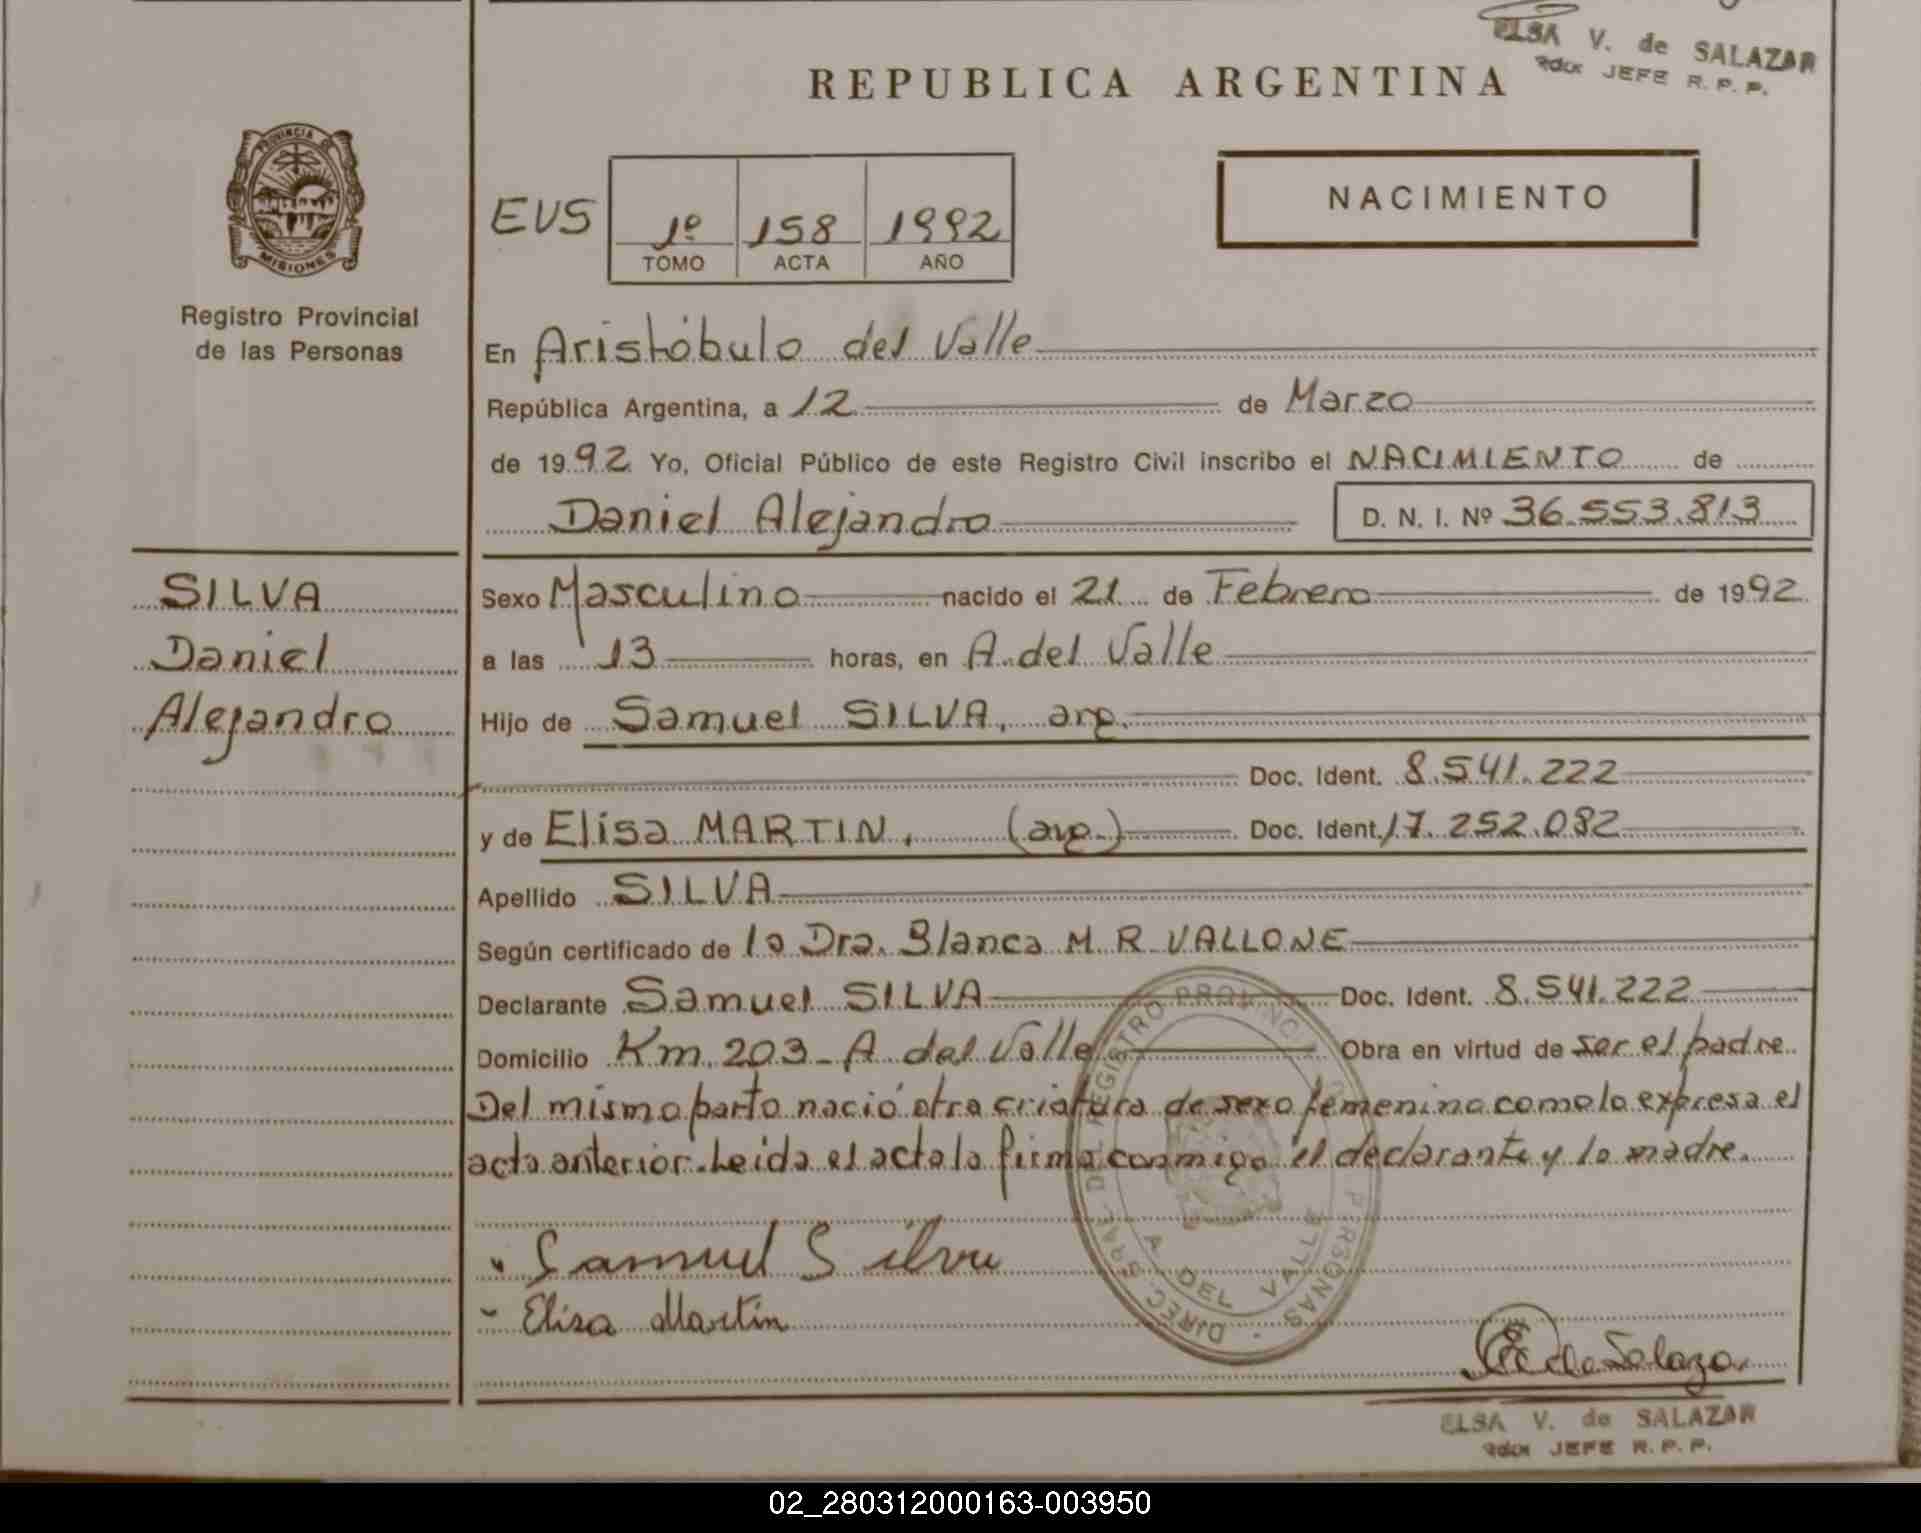 ELSA V. de SALAZAR
JEFE R. P. P.
REPUBLICA ARGENTINA
PROVINCIA DE
MISIONES
Registro Provincial
de las Personas
EVS
1º 158 1992
TOMO ACTA AÑO
NACIMIENTO
En Aristóbulo del Valle
República Argentina, a 12 de Marzo
de 1992 Yo, Oficial Público de este Registro Civil inscribo el NACIMIENTO de
Daniel Alejandro D. N. I. Nº 36.553.813
SILVA
Daniel
Alejandro
Sexo Masculino nacido el 21 de Febrero de 1992
a las 13 horas, en A. del Valle
Hijo de Samuel SILVA, arg.
Doc. Ident. 8.541.222
y de Elisa MARTIN, (arg.) Doc. Ident. 17.252.082
Apellido SILVA
Según certificado de la Dra. Blanca M. R. VALLONE
Declarante Samuel SILVA Doc. Ident. 8.541.222
Domicilio Km. 203 - A. del Valle Obra en virtud de ser el padre.
Del mismo parto nació otra criatura de sexo femenino como lo expresa el
acta anterior. Leida el acta la firma conmigo el declarante y la madre.
Samuel Silva
Elisa Martin
A. DEL VALLE
E. de Salazar
ELSA V. de SALAZAR
JEFE R. P. P.
02_280312000163-003950